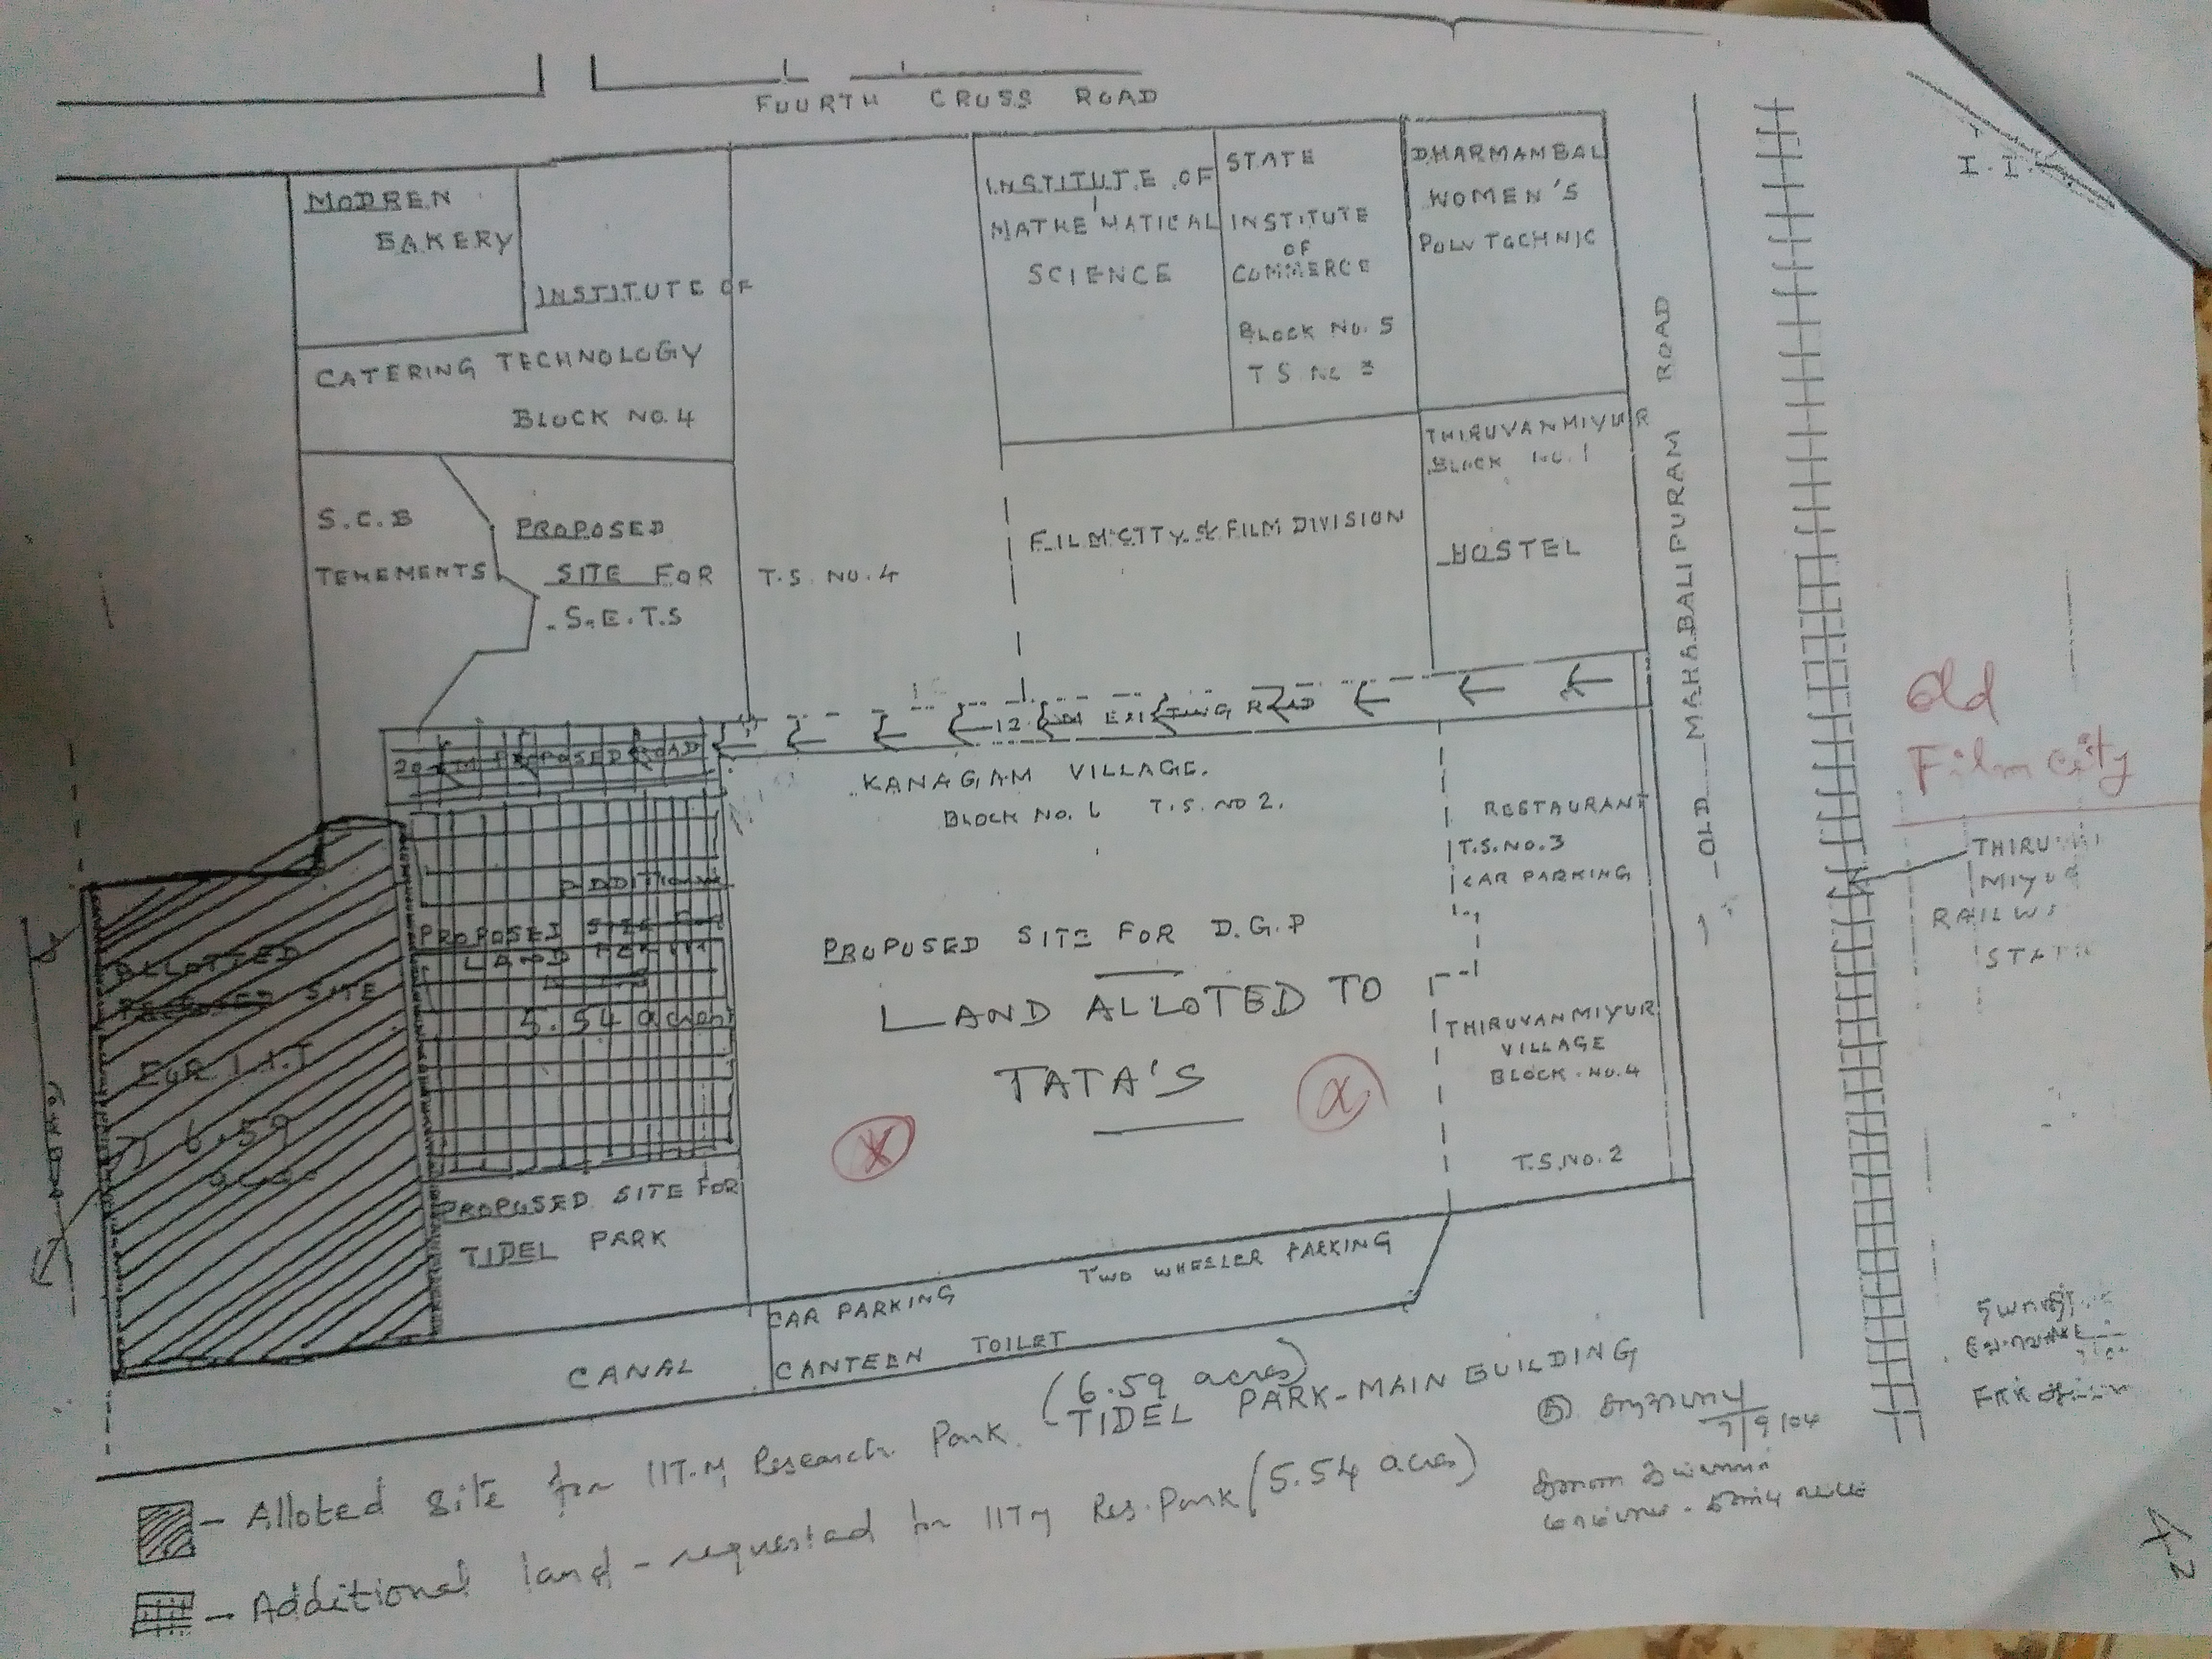 FOURTH CROSS ROAD
MODREN
BAKERY
INSTITUTE OF
CATERING TECHNOLOGY
BLOCK NO. 4
INSTITUTE OF
MATHEMATICAL
SCIENCE
STATE
INSTITUTE
OF
COMMERCE
BLOCK NO. 5
T S No 3
DHARMAMBAL
WOMEN'S
POLYTECHNIC
I.I.
S.C.B
TENEMENTS
PROPOSED
SITE FOR
S.E.T.S
T.S. NO. 4
FILM CITY & FILM DIVISION
THIRUVANMIYUR
BLOCK NO. 1
HOSTEL
OLD MAHABALIPURAM ROAD
12 M EXISTING ROAD
20 M PROPOSED ROAD
KANAGAM VILLAGE.
BLOCK NO. 6 T.S. NO 2.
RESTAURANT
T.S. NO. 3
CAR PARKING
Old
Film city
THIRUVAN
MIYUR
RAILWA
STATI
ADDITIONAL
PROPOSED SITE FOR
LAND FOR IIT
5.54 acres
ALLOTTED
PROPOSED SITE
FOR I.I.T
6.59
acres
PROPOSED SITE FOR D.G.P
LAND ALLOTED TO
TATA'S
THIRUVANMIYUR
VILLAGE
BLOCK. NO. 4
T.S. NO. 2
PROPOSED SITE FOR
TIDEL PARK
CAR PARKING
TWO WHEELER PARKING
CANAL
CANTEEN TOILET
TIDEL PARK-MAIN BUILDING
- Alloted site for IIT-M Research Park (6.59 acres)
- Additional land - requested for IITM Res. Park (5.54 acres)
7/9/04